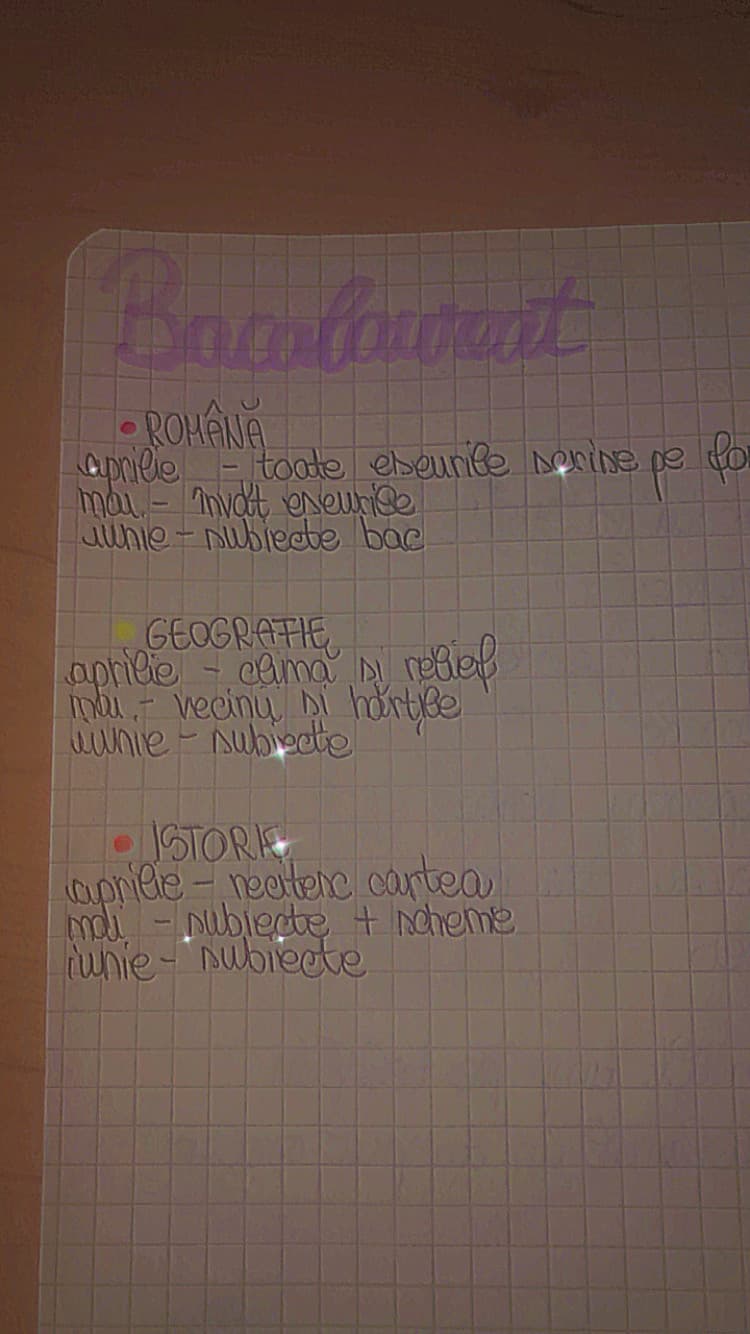 Bacalaureat
• ROMÂNĂ
aprilie - toate eseurile scrise pe
mai - învăț eseurile
iunie - subiecte bac
• GEOGRAFIE
aprilie - clima si relief
mai - vecinii si hărțile
iunie - subiecte
• ISTORIE
aprilie - recitesc cartea
mai - subiecte + scheme
iunie - subiecte